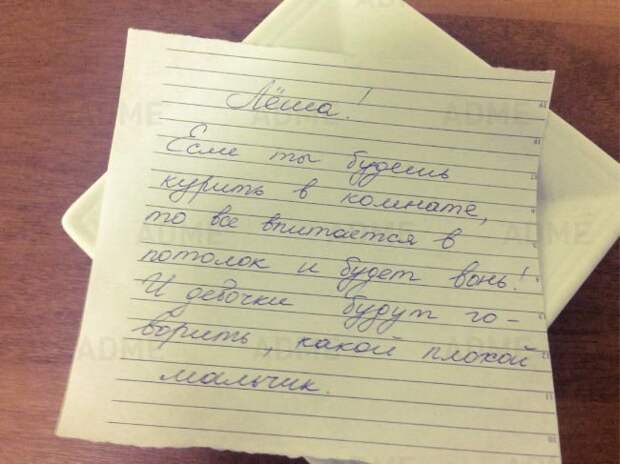 Лёша!
Если ты будешь
курить в комнате,
то все впитается в
потолок и будет вонь!
И девочки будут го-
ворить какой плохой
мальчик.
ADME
ADME
ADME
ADME
ADME
ADME
ADME
ADME